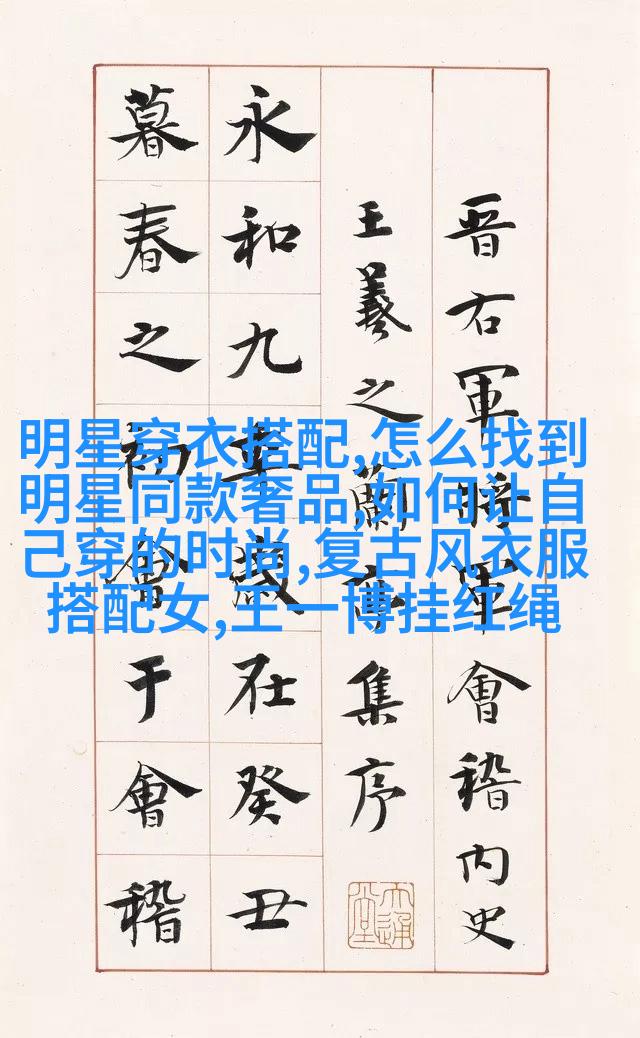 晋右軍將軍會稽内史
王羲之蘭亭集序
永和九年歲在癸丑
暮春之初會于會稽
明星穿衣搭配,怎么找到
明星同款奢品,如何让自
己穿的时尚,复古风衣服
搭配女,王一博挂红绳